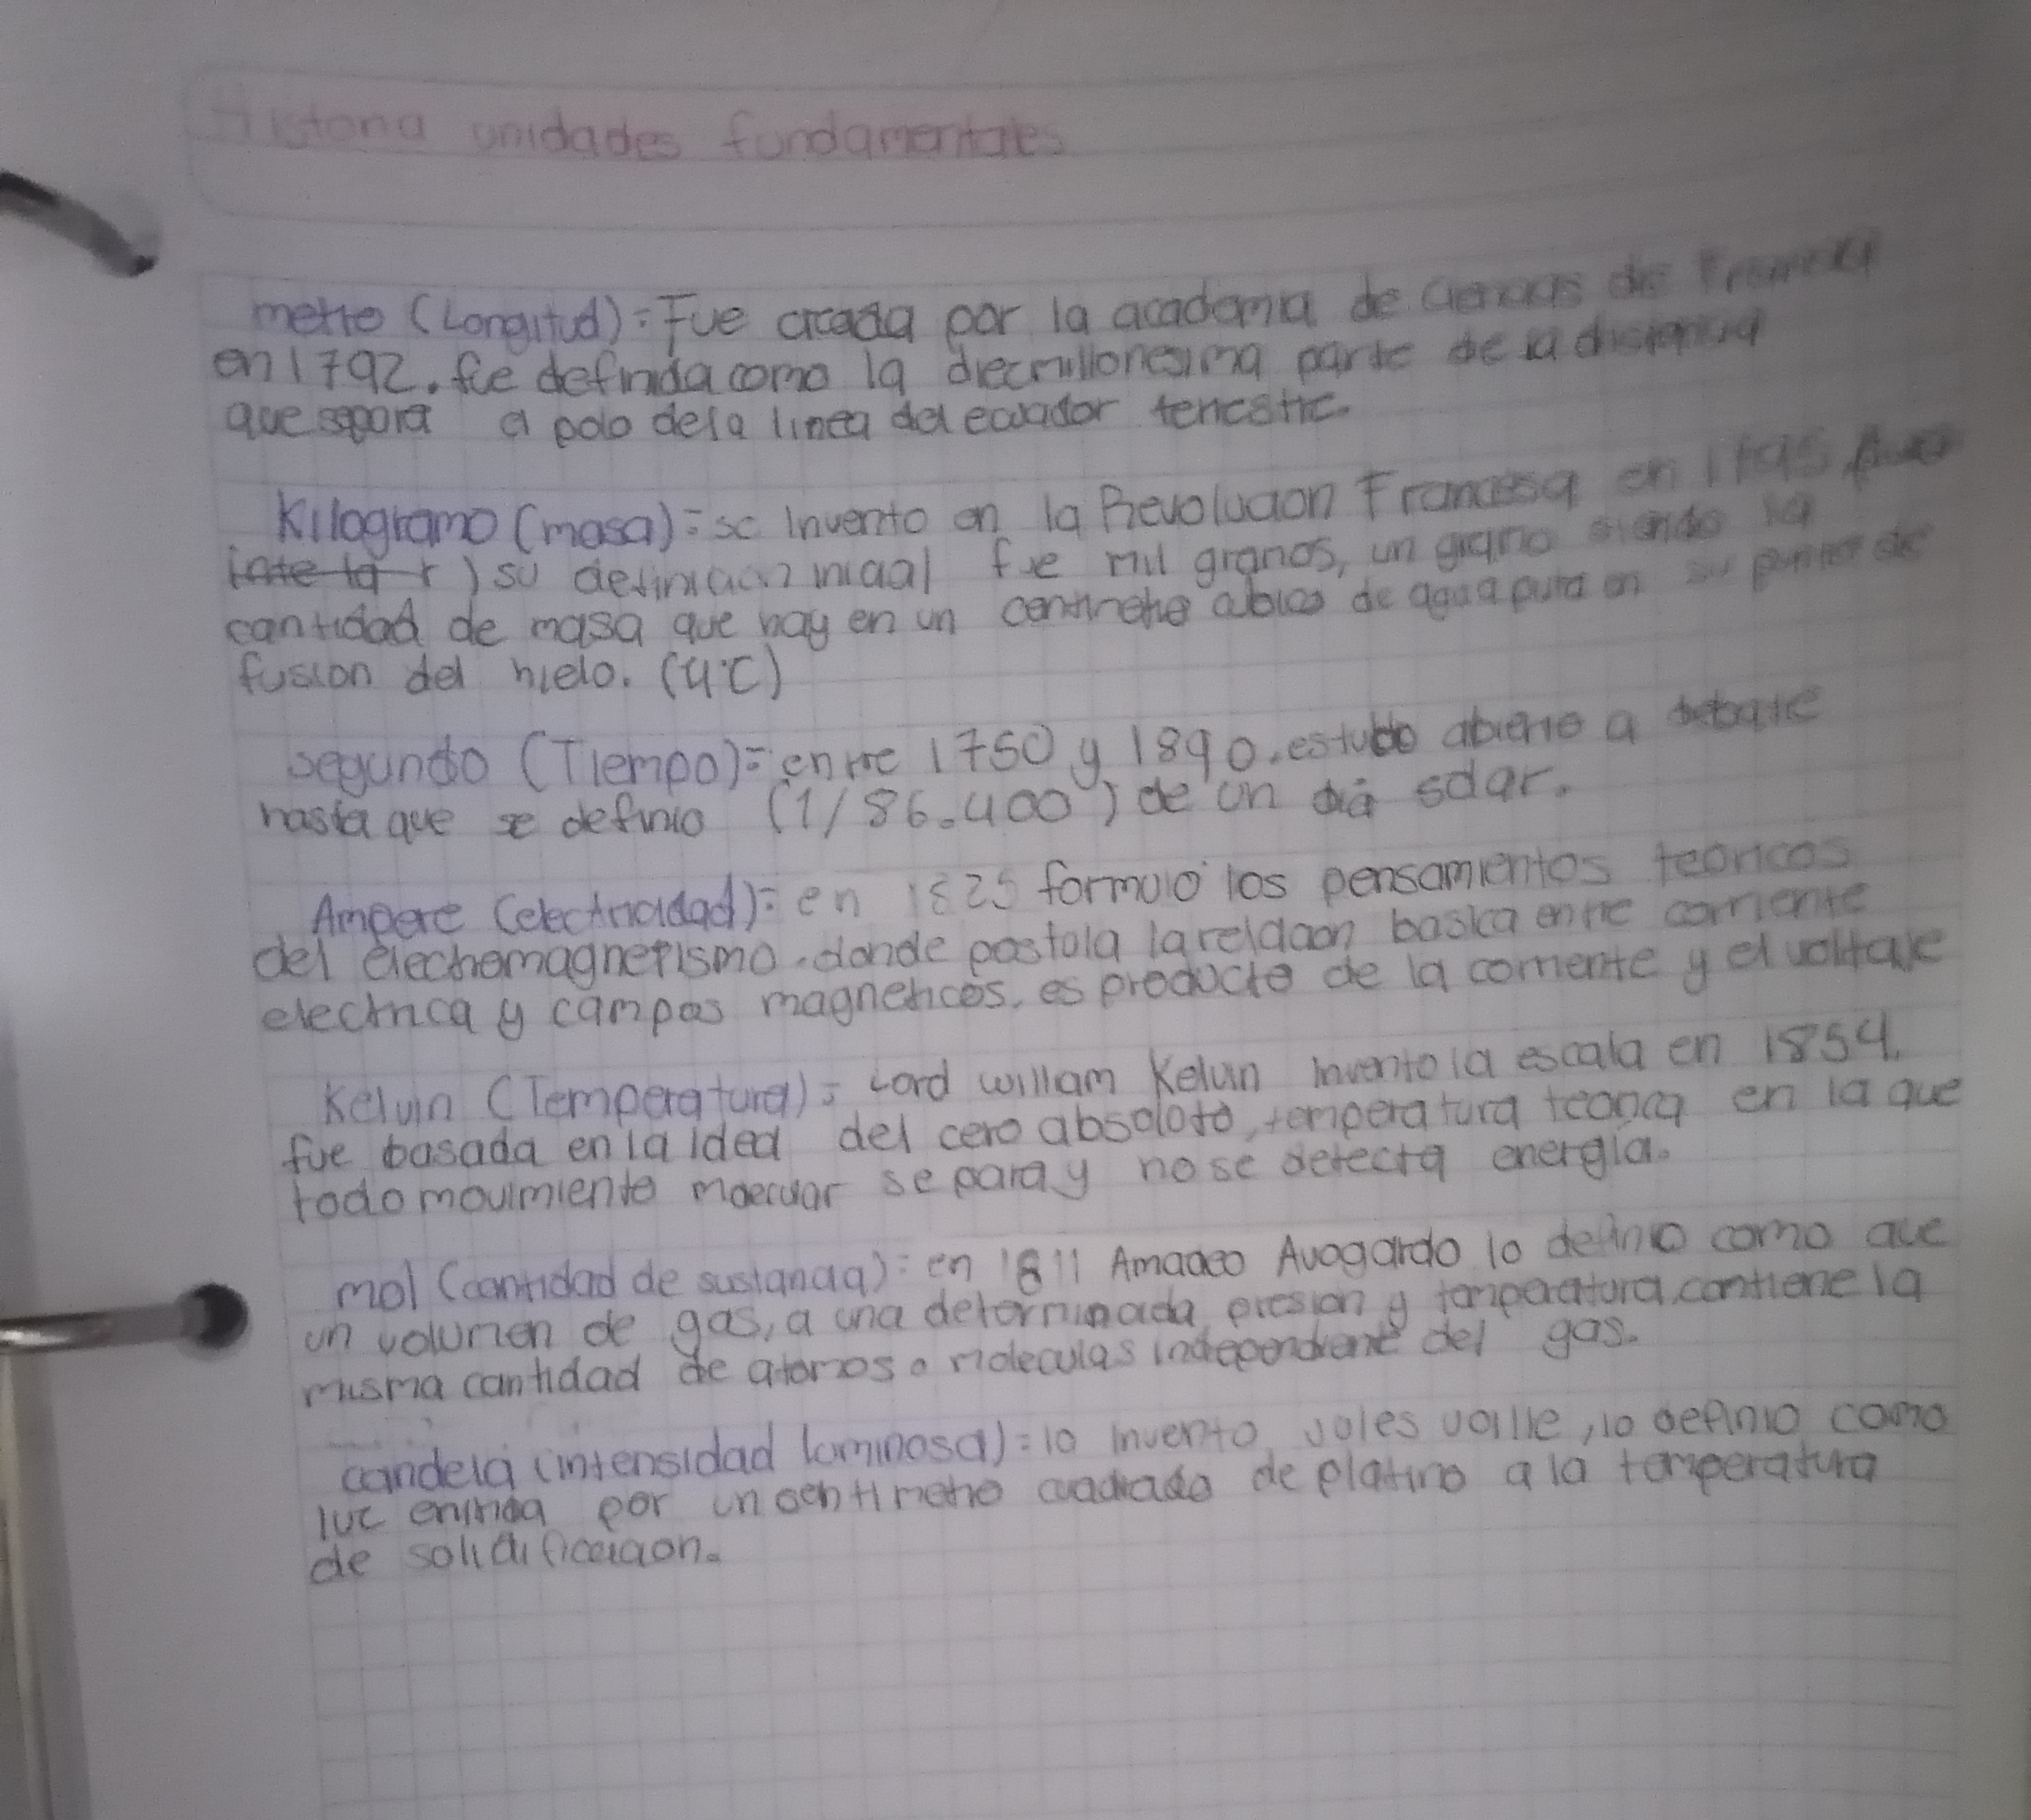 Historia unidades fundamentales
metro (Longitud): Fue creada por la academia de Ciencias de Francia
en 1792. fue definida como la diezmillonesima parte de la distancia
que separa a polo de la linea del ecuador terrestre.
Kilogramo (masa): se invento en la Revolucion Francesa en 1795
su definicion inicial fue mil granos, un grano siendo la
cantidad de masa que hay en un centimetro cubico de agua pura en su punto de
fusion del hielo. (4°C)
segundo (Tiempo): entre 1750 y 1890. estubo abierto a debate
hasta que se definio (1/86.400) de un dia solar.
Ampere (electricidad): en 1825 formulo los pensamientos teoricos
del electromagnetismo. donde postula la relacion basica entre corriente
electrica y campos magneticos. es producto de la corriente y el voltaje
Kelvin (Temperatura): Lord William Kelvin invento la escala en 1854.
fue basada en la idea del cero absoluto, temperatura teorica en la que
todo movimiento molecular se para y no se detecta energia.
mol (cantidad de sustancia): en 1811 Amadeo Avogardo lo definio como que
un volumen de gas, a una determinada presion y temperatura, contiene la
misma cantidad de atomos o moleculas independiente del gas.
candela (intensidad luminosa): lo invento Joles Voille, lo definio como
luz emitida por un centimetro cuadrado de platino a la temperatura
de solidificacion.